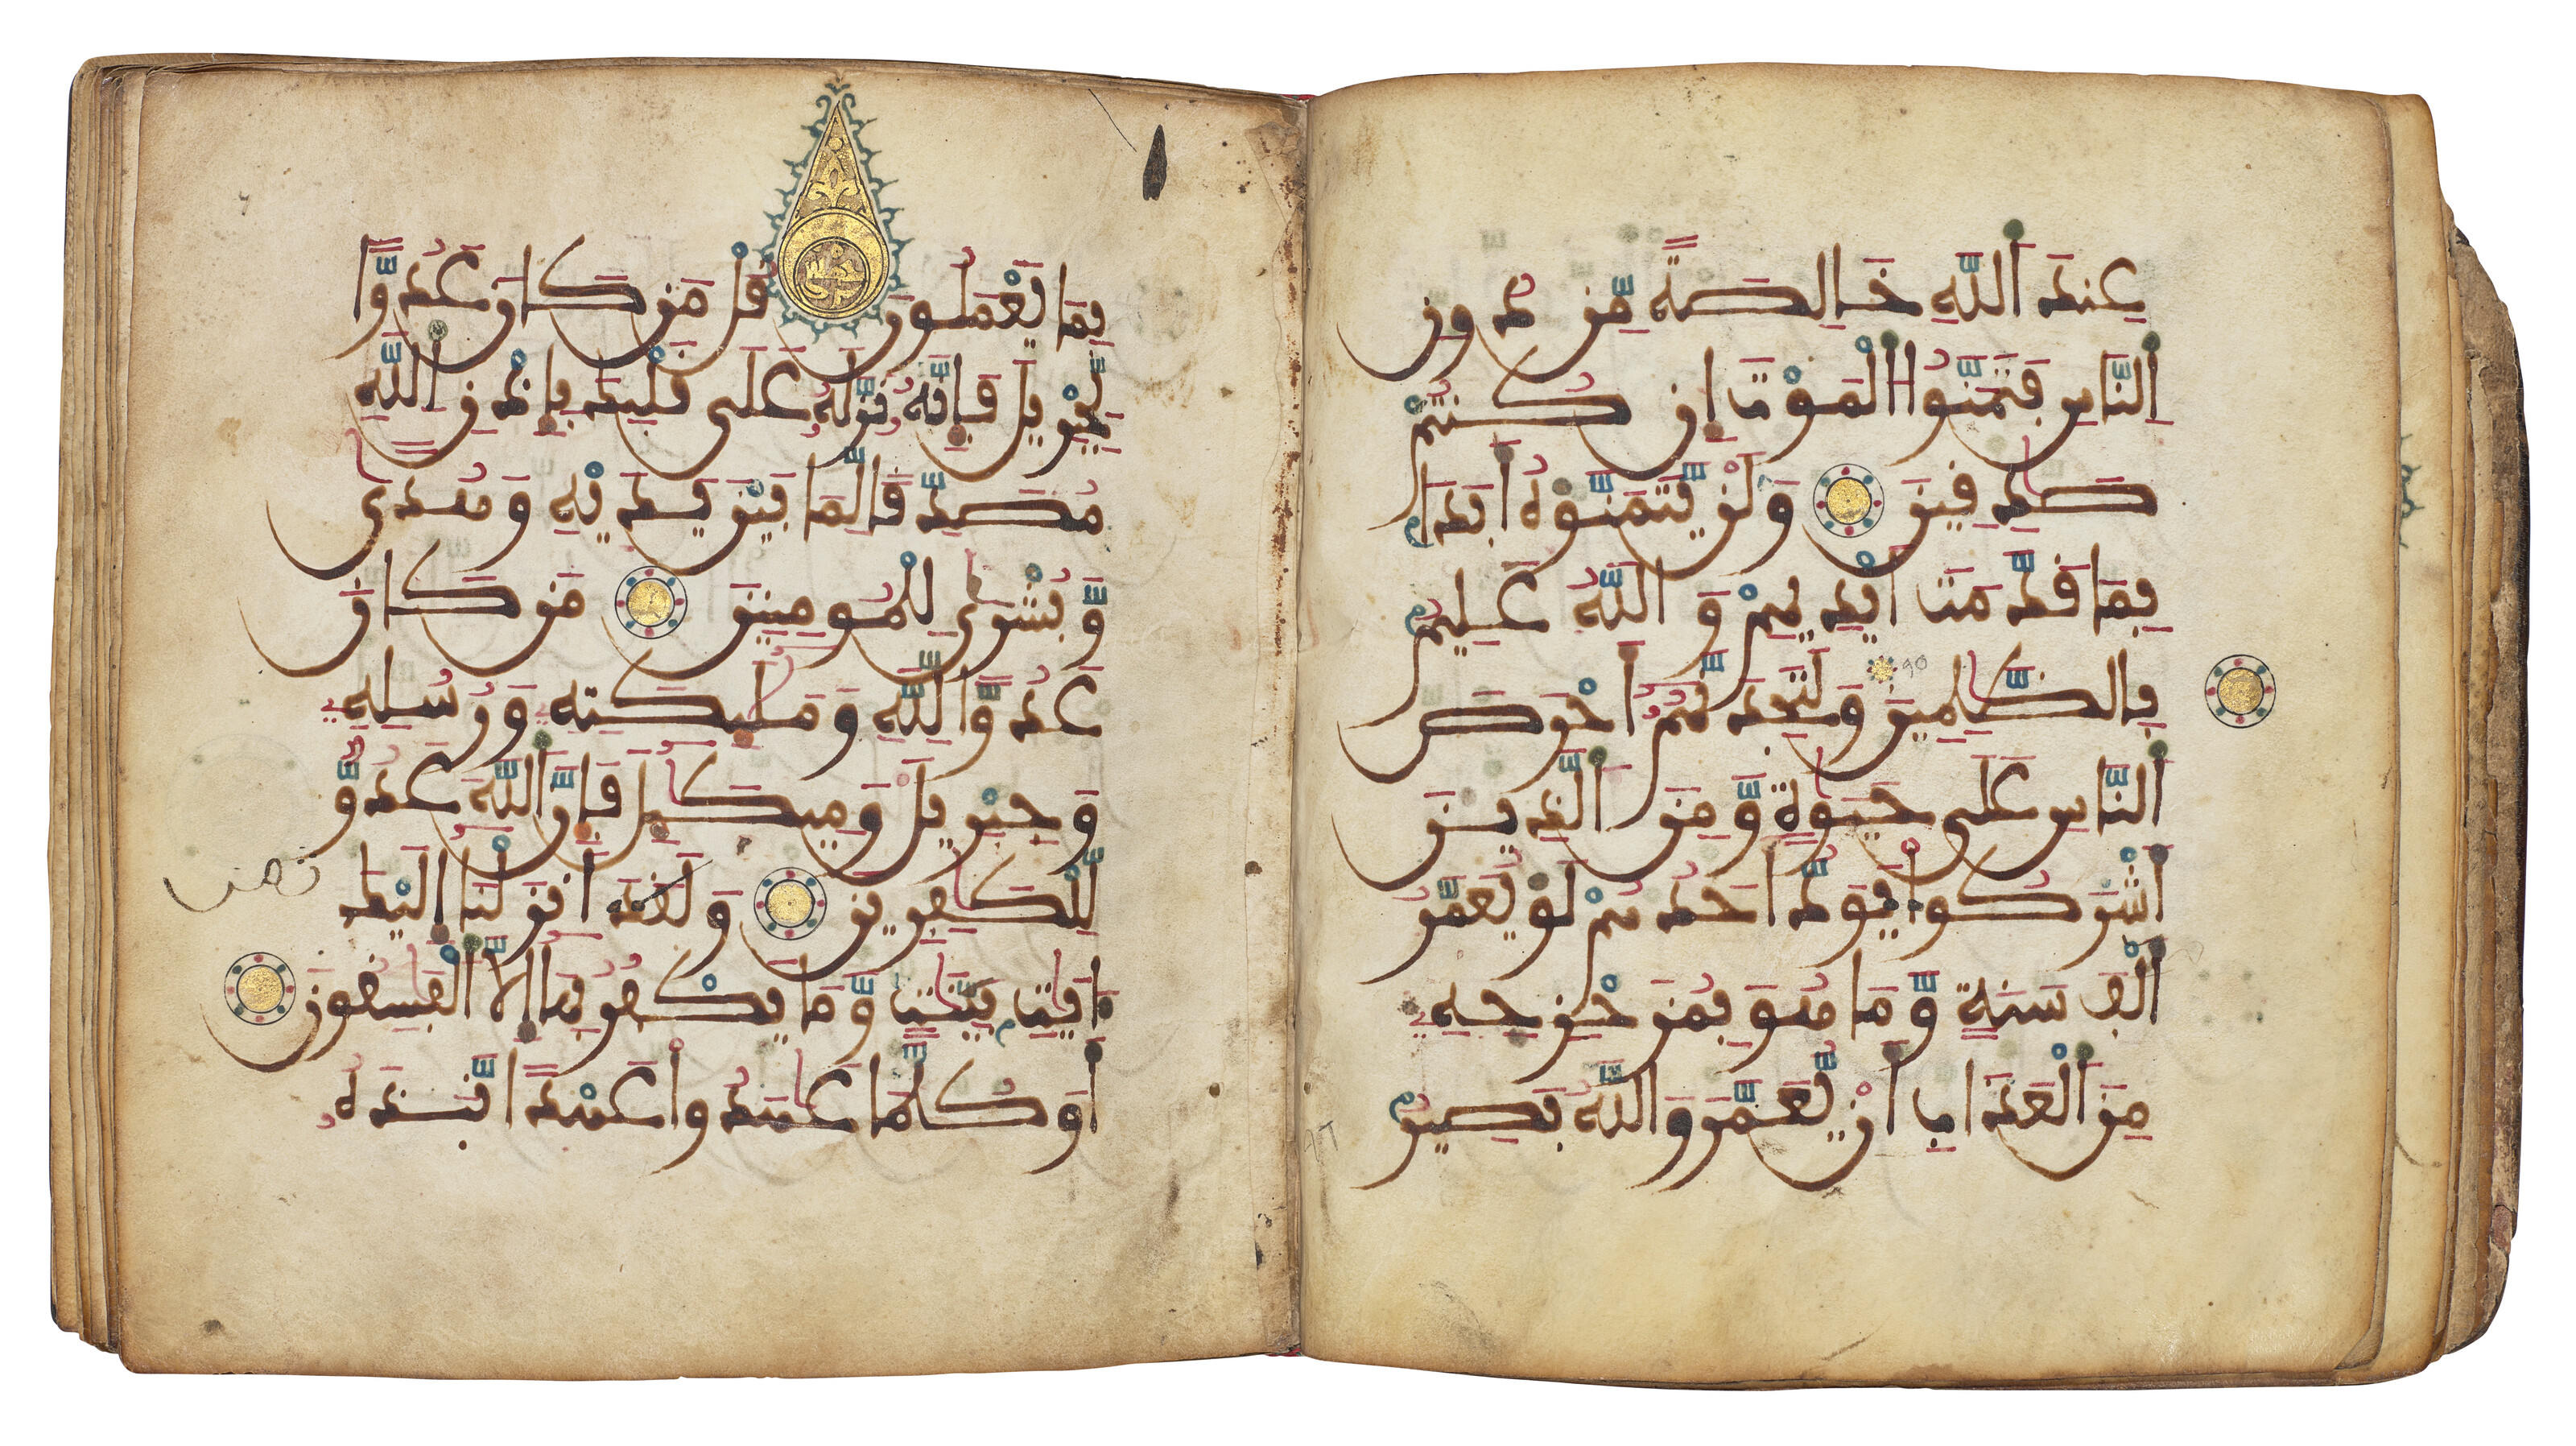 عِندَ اَللَّهِ خَالِصَةً مِّن دُونِ
اِلنَّاسِ فَتَمَنَّوُاْ اُلْمَوْتَ إِن كُنتُمْ
صَٰدِقِينَ وَلَنْ يَّتَمَنَّوْهُ أَبَدَاۢ
بِمَا قَدَّمَتَ اَيْدِيهِمْ وَاللَّهُ عَلِيمُۢ
بِالظَّٰلِمِينَ وَلَتَجِدَنَّهُمُۥ أَحْرَصَ
اَلنَّاسِ عَلَىٰ حَيَوٰةٍ وَّمِنَ اَلَّذِينَ
أَشْرَكُواْ يَوَدُّ أَحَدُهُمْ لَوْ يُعَمَّرُ
أَلْفَ سَنَةٍ وَّمَا هُوَ بِمُزَحْزِحِهِۦ
مِنَ اَلْعَذَابِ أَنْ يُّعَمَّرَ وَاللَّهُ بَصِيرُۢ
بِمَا يَعْمَلُونَ قُلْ مَن كَانَ عَدُوّاً
لِّجِبْرِيلَ فَإِنَّهُۥ نَزَّلَهُۥ عَلَىٰ قَلْبِكَ بِإِذْنِ اِللَّهِ
مُصَدِّقاً لِّمَا بَيْنَ يَدَيْهِ وَهُدىً
وَّبُشْرَىٰ لِلْمُومِنِينَ مَن كَانَ
عَدُوّاً لِّلَّهِ وَمَلَٰٓئِكَتِهِۦ وَرُسُلِهِۦ
وَجِبْرِيلَ وَمِيكَٰٓئِلَ فَإِنَّ اَللَّهَ عَدُوٌّ
لِّلْكَٰفِرِينَ وَلَقَدَ اَنزَلْنَا إِلَيْكَ
ءَايَٰتِۭ بَيِّنَٰتٍ وَّمَا يَكْفُرُ بِهَا إِلَّا اَلْفَٰسِقُونَ
أَوَكُلَّمَا عَٰهَدُواْ عَهْداً نَّبَذَهُۥ